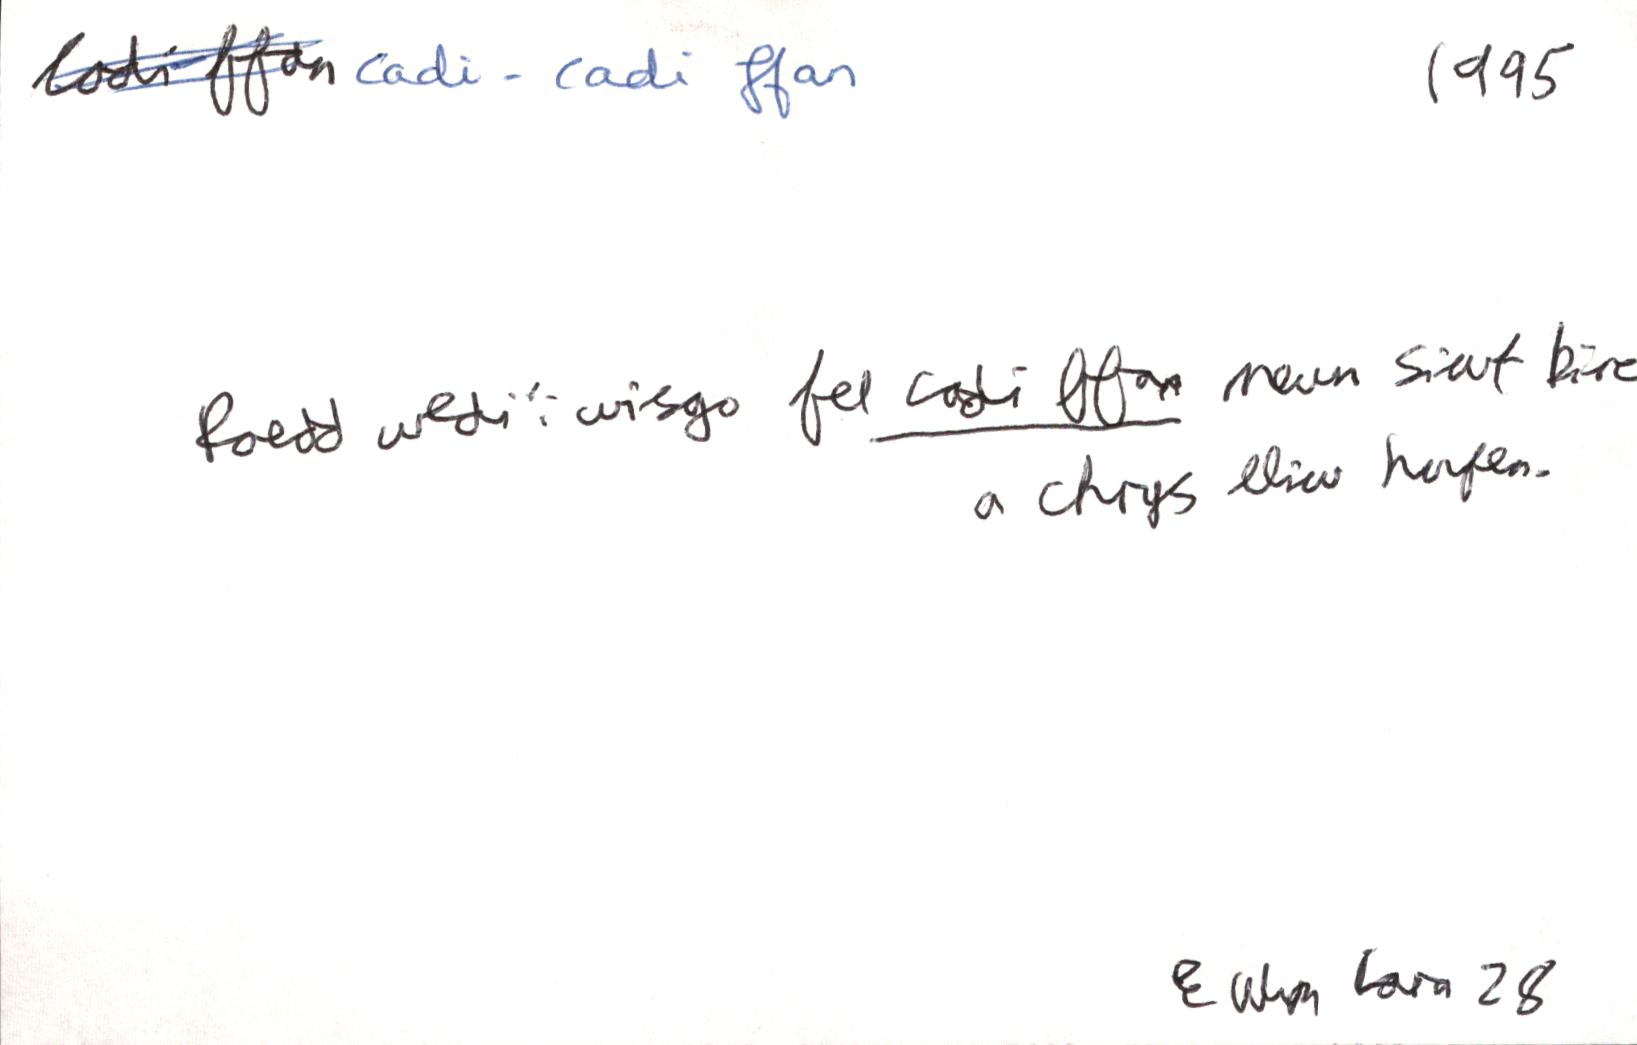 ~~Codi ffan~~ cadi - cadi ffan 1995
Roedd wedi'i wisgo fel cadi ffan mewn siwt binc
a chrys lliw hufen.
E Wyn Lara 28